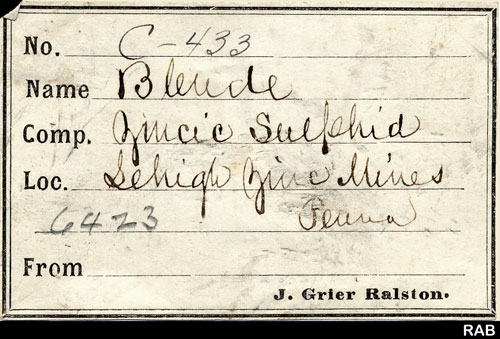 No. C-433
Name Blende
Comp. Zincic Sulphid
Loc. Lehigh Zinc Mines
6423 Penna
From
J. Grier Ralston.
RAB